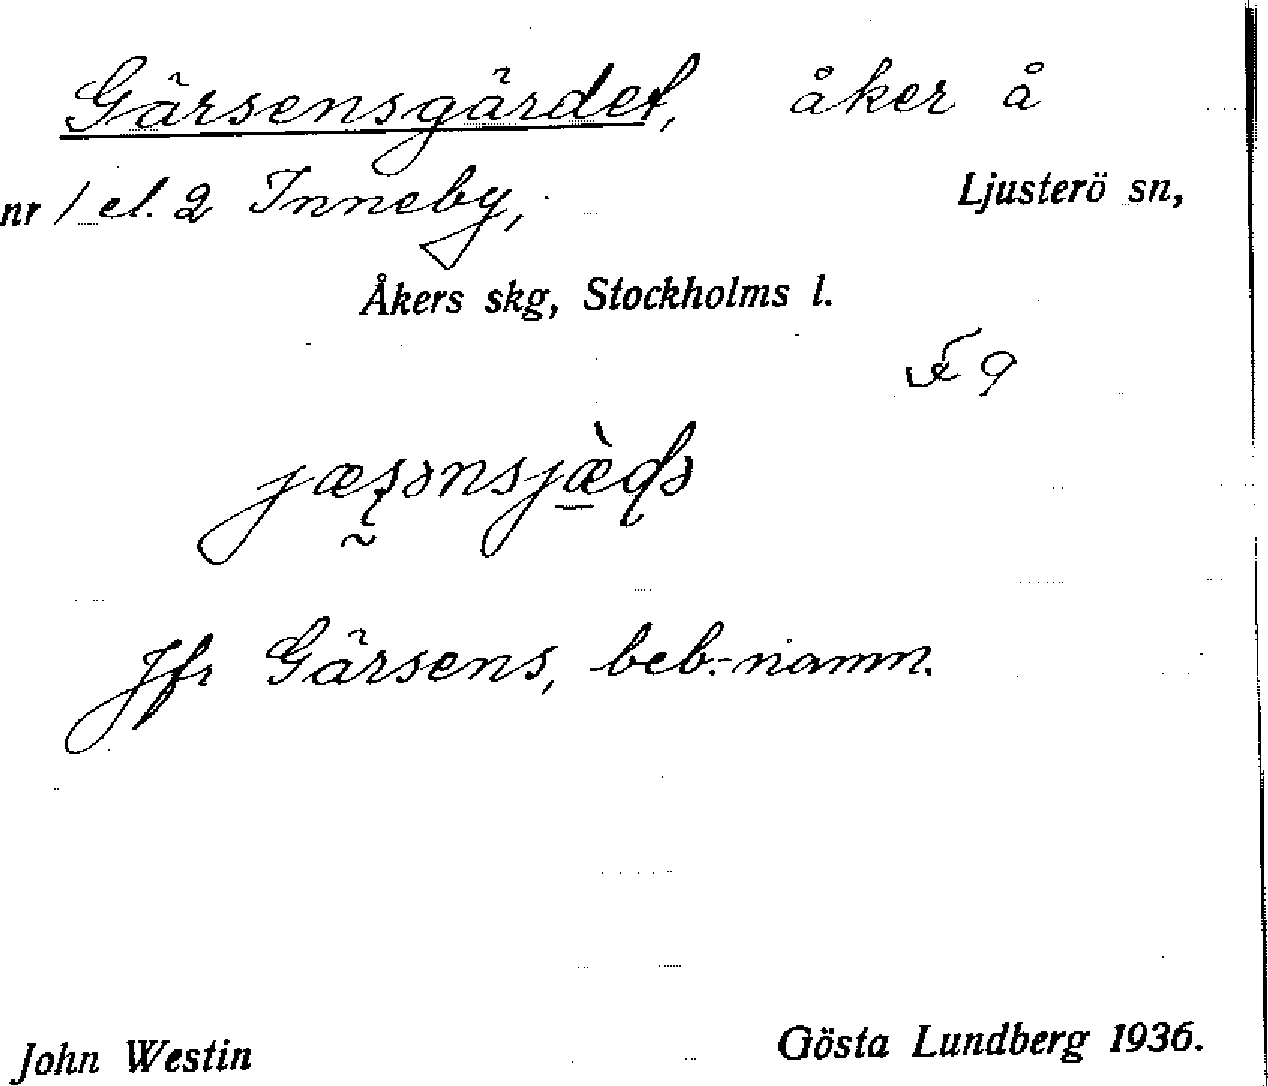 Gärsensgärdet, åker å
nr 1 el. 2 Inneby, Ljusterö sn,
Åkers skg, Stockholms l.
9
Jfr Gärsens, beb.-namn.
John Westin Gösta Lundberg 1936.